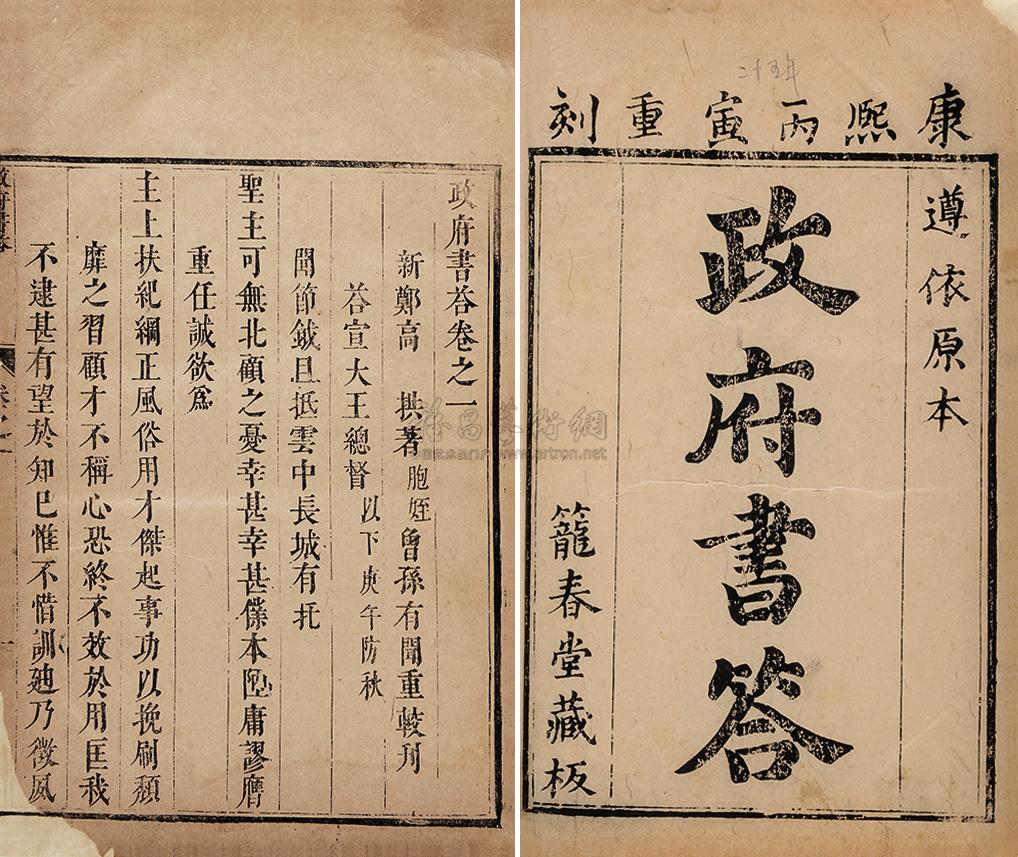 二十五年
康熙丙寅重刻
遵依原本
政府書答
籠春堂藏板
政府書荅卷之一
新鄭高 拱著 胞姪曾孫有聞重較刋
荅宣大王總督 以下庚午防秋
聞節鉞且抵雲中長城有托
聖主可無北顧之憂幸甚幸甚僕本陋庸謬膺
重任誠欲爲
主上扶紀綱正風俗用才傑起事功以挽刷頽
靡之習顧才不稱心恐終不效於用匡我
不逮甚有望於知巳惟不惜訓廸乃徵夙
政府書荅
卷之一
一
www.artron.net